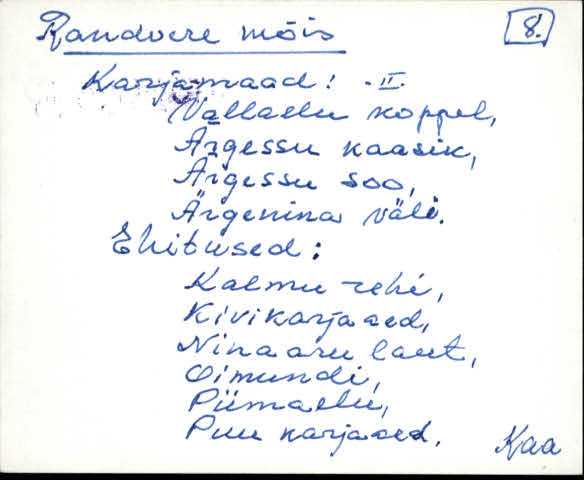 Randvere mõis 8.
Karjamaad: II.
Vallaelu koppel,
Ärgessu kaasik,
Ärgessu soo,
Ärgenina väli.
Ehitused:
Kalmu rehi,
Kivikarjaaed,
Ninaaru laut,
Oimundi,
Piimaelu,
Puu karjaaed.
Kaa